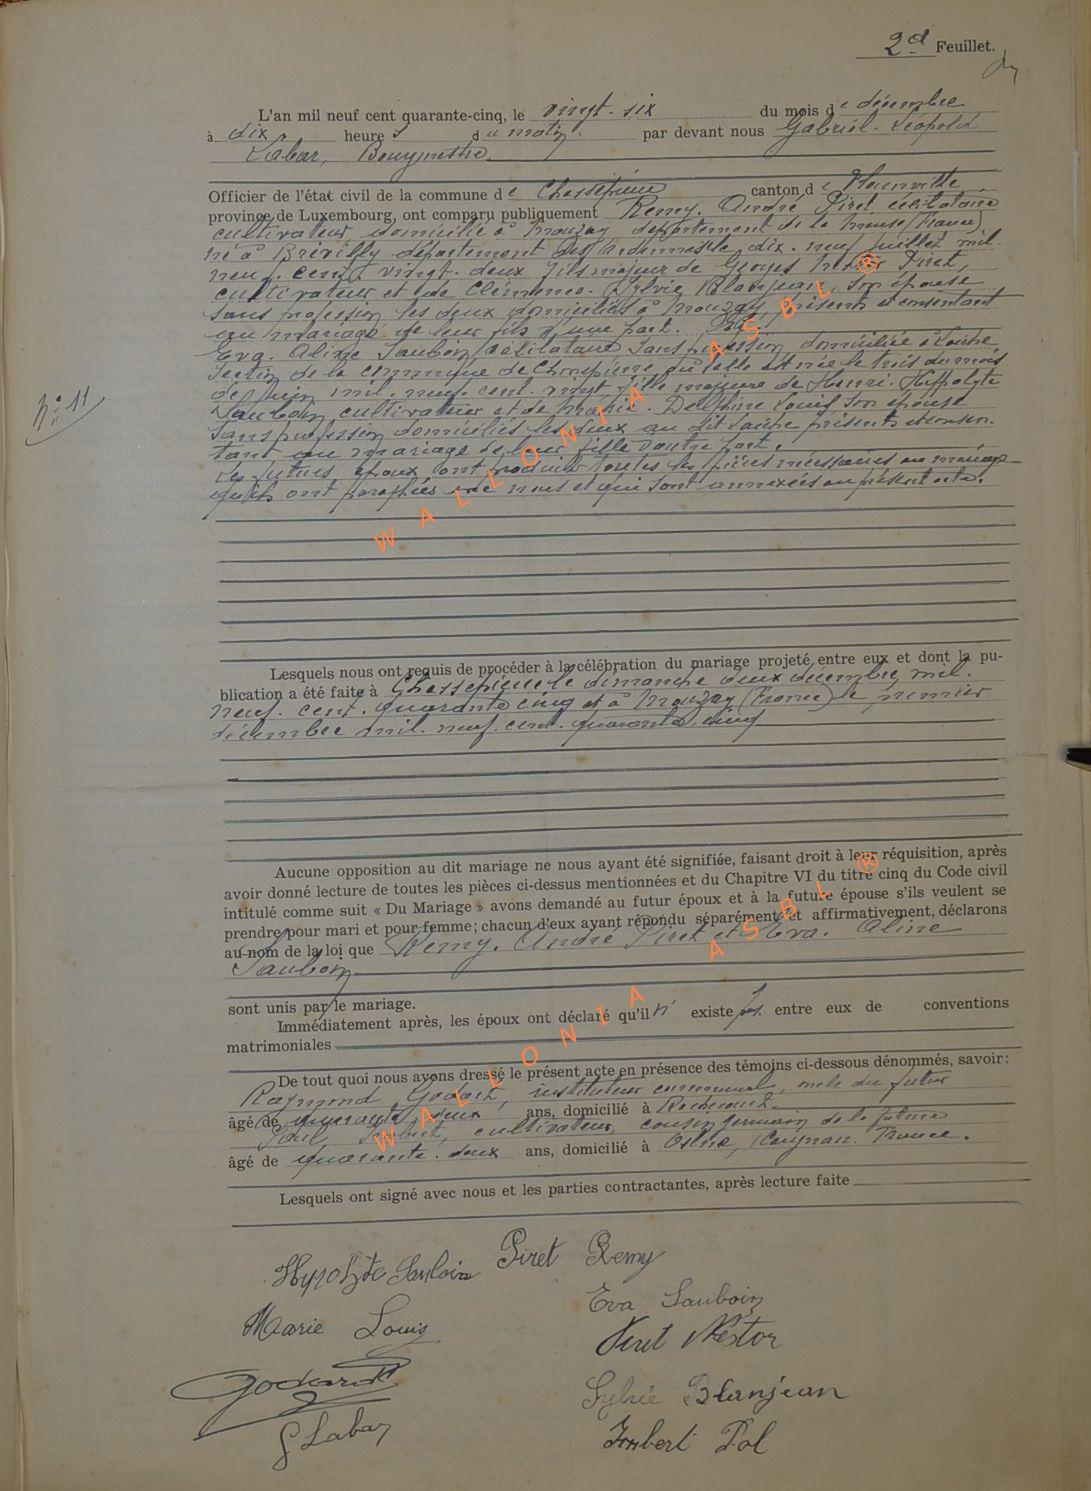 2d Feuillet.
L'an mil neuf cent quarante-cinq, le vingt-six du mois de décembre
à dix heures du matin. par devant nous Gabriel-Léopold
Labar, Bourgmestre.
Officier de l'état civil de la commune de Chassepierre canton de Florenville,
province de Luxembourg, ont comparu publiquement Remy. André Piret célibataire
cultivateur domicilié à Mouzay département de la Meuse (France)
né à Brévilly département des Ardennes le dix-neuf juillet mil.
neuf. cent. vingt-deux fils majeur de Georges Nestor Piret,
cultivateur et de Clémence. Sylvie Blanjean, son épouse
sans profession les deux domiciliés à Mouzay, présents et consentant
au mariage de leur fils d'une part. Et
Eva. Aline Sauboin célibataire sans profession domiciliée à Laiche
section de la commune de Chassepierre où elle est née le trois du mois
de juin mil. neuf. cent. vingt fille majeure de Henri. Hippolyte
Sauboin cultivateur et de Marie. Delphine Louis, son épouse
sans profession domiciliés les deux au dit Laiche présents et consen-
tant au mariage de leur fille d'autre part.
Les futurs époux ont produit toutes les pièces nécessaires au mariage
qu'ils ont paraphées avec nous et qui sont annexées au présent acte.
No 11
Lesquels nous ont requis de procéder à la célébration du mariage projeté entre eux et dont la pu-
blication a été faite à Chassepierre le dimanche deux décembre mil.
neuf. cent. quarante cinq et à Mouzay (France) le premier
décembre mil. neuf. cent. quarante cinq
Aucune opposition au dit mariage ne nous ayant été signifiée, faisant droit à leur réquisition, après
avoir donné lecture de toutes les pièces ci-dessus mentionnées et du Chapitre VI du titre cinq du Code civil
intitulé comme suit « Du Mariage » avons demandé au futur époux et à la future épouse s'ils veulent se
prendre pour mari et pour femme; chacun d'eux ayant répondu séparément et affirmativement, déclarons
au nom de la loi que Remy. André Piret et Eva. Aline
Sauboin
sont unis par le mariage.
Immédiatement après, les époux ont déclaré qu'il n'existe pas entre eux de conventions
matrimoniales
De tout quoi nous avons dressé le présent acte en présence des témoins ci-dessous dénommés, savoir:
Raymond Godart, instituteur communal, oncle du futur
âgé de quarante deux ans, domicilié à Rochecourt.
Paul Imbert, cultivateur, cousin germain de la future
âgé de quarante. deux ans, domicilié à Osne, Carignan France.
Lesquels ont signé avec nous et les parties contractantes, après lecture faite
Piret Remy
Hypolyte Sauboin
Eva Sauboin
Marie Louis
Piret Nestor
Godart
Sylvie Blanjean
G Labar
Imbert Pol
WALLONIA ASBL ®
WALLONIA ASBL ®